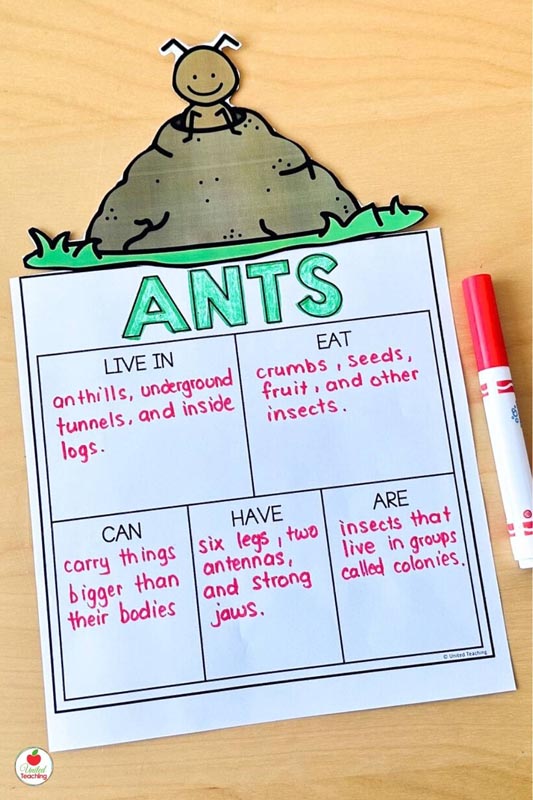 ANTS
LIVE IN
anthills, underground
tunnels, and inside
logs.
EAT
crumbs, seeds,
fruit, and other
insects.
CAN
carry things
bigger than
their bodies
HAVE
six legs, two
antennas,
and strong
jaws.
ARE
insects that
live in groups
called colonies.
© United Teaching
United
Teaching